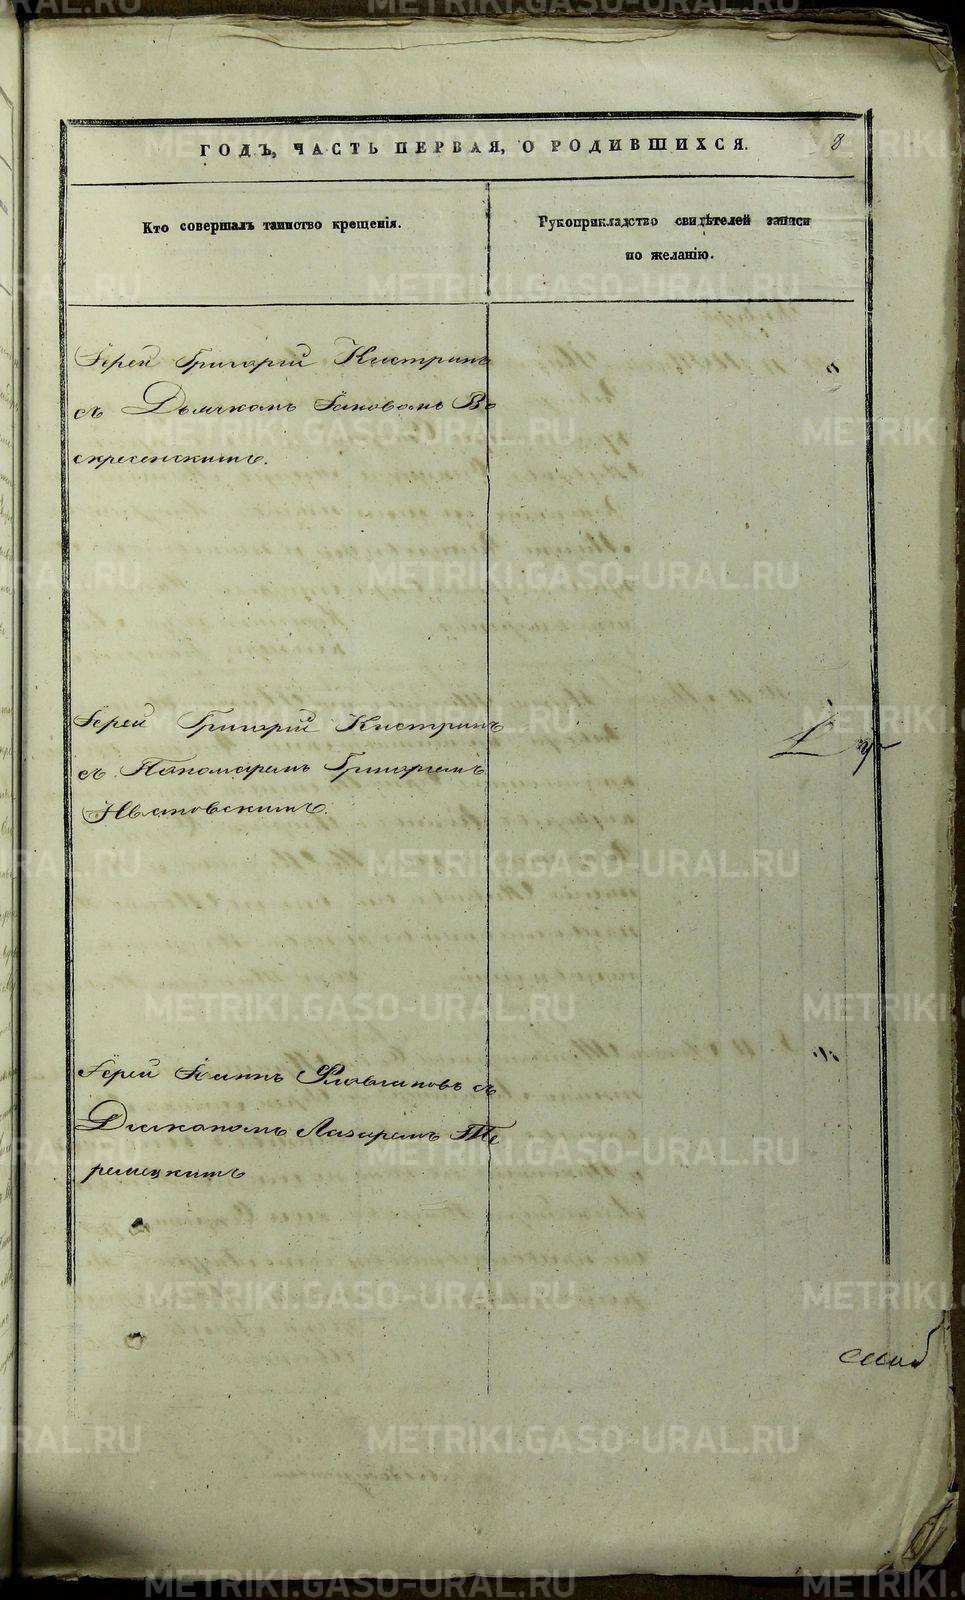 ГОДЪ, ЧАСТЬ ПЕРВАЯ, О РОДИВШИХСЯ. 8
Кто совершалъ таинство крещенія.
Рукоприкладство свидѣтелей записи
по желанію.
Іерей Григорій Кистринъ
съ Дьячкомъ Іаковомъ Во
скресенскимъ.
Іерей Григорій Кистринъ
съ Пономаремъ Григоріемъ
Іерей Іоаннъ Флавіановъ съ
Діакономъ Лазаремъ Те
ремецкимъ
METRIKI.GASO-URAL.RU